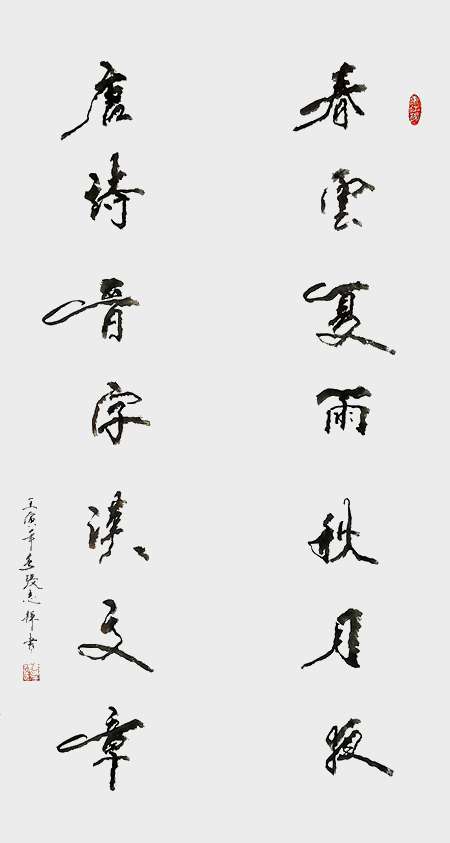 春雲夏雨秋月夜
唐詩晉字漢文章
壬寅年張志輝書